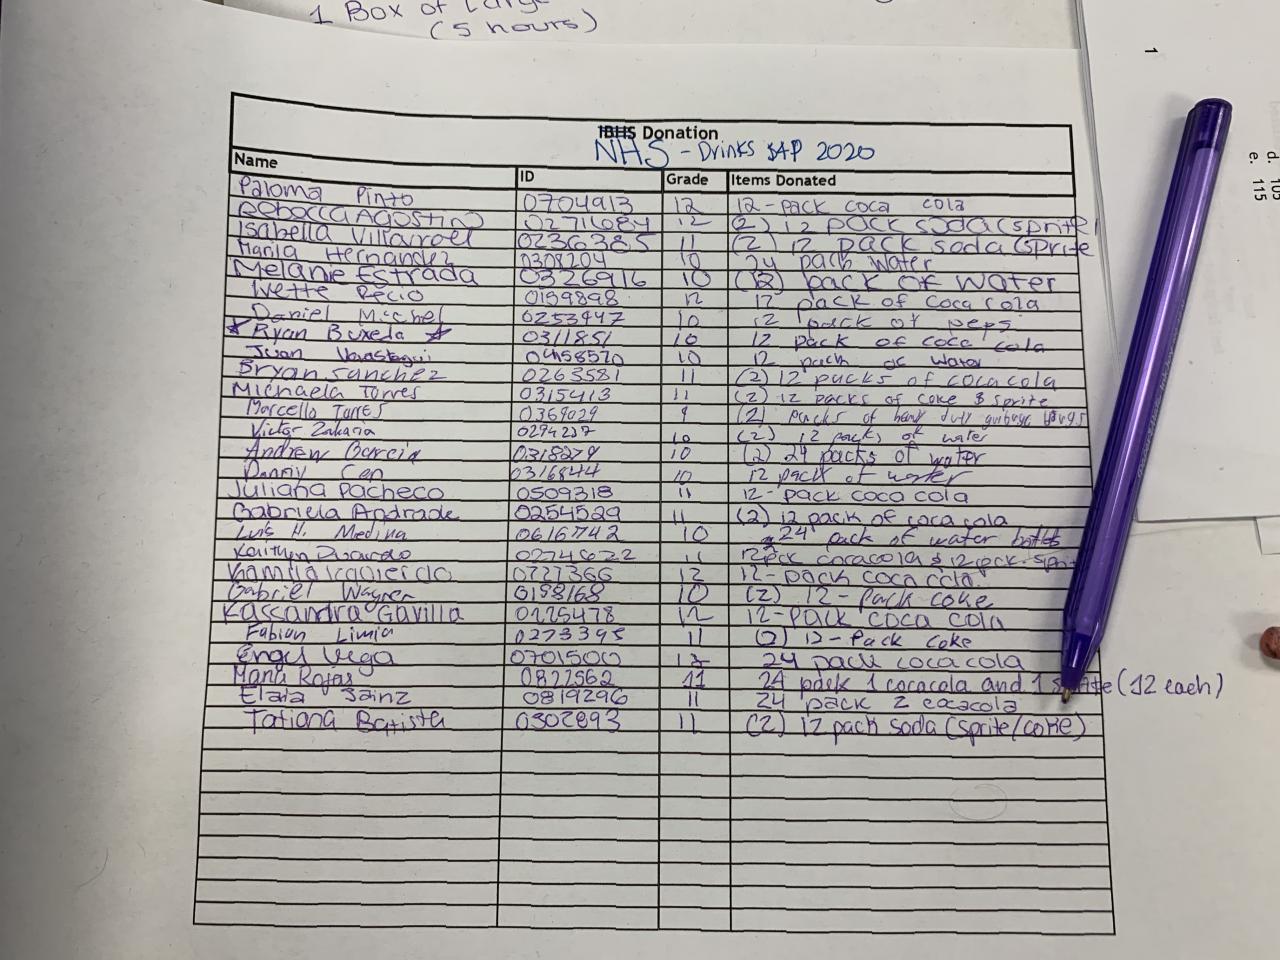 1 Box of Large
(5 hours)
1
d. 105
e. 115
IBHS Donation
NHS - Drinks SAP 2020
Name ID Grade Items Donated
Paloma Pinto 0704913 12 12-pack coca cola
Rebecca Agostino 0271684 12 (2) 12 pack soda (sprite
Isabella Villarroel 0236385 11 (2) 12 pack soda (sprite
Maria Hernandez 0308204 10 24 pack water
Melanie Estrada 0326916 10 (12) pack of water
Ivette Recio 0159898 12 12 pack of coca cola
Daniel Michel 0253447 10 12 pack of peps
Ryan Buxeda 0311851 10 12 pack of coca cola
Juan 0458570 10 12 pack of water
Bryan Sanchez 0263581 11 (2) 12 packs of coca cola
Michaela Torres 0315413 11 (2) 12 packs of coke & sprite
Marcello Torres 0369029 9 (2) packs of heavy duty garbage bags
Victor Zakaria 0294237 10 (2) 12 packs of water
Andrew Garcia 0318279 10 (2) 24 packs of water
Danny Cen 0316844 10 12 pack of water
Juliana Pacheco 0509318 11 12-pack coca cola
Gabriela Andrade 0254529 11 (2) 12 pack of coca cola
Luis H. Medina 0616742 10 24 pack of water bottles
Kaithyn Duardo 0274622 11 12 pck coca cola & 12 pck. Sprite
Kamila Izquierdo 0727366 12 12-pack coca cola.
Gabriel Wagner 0158168 10 (2) 12-Pack coke
Kassandra Gavilla 0225478 12 12-Pack coca cola
Fabian Limia 0273395 11 (2) 12-Pack Coke
Engel Vega 0701500 12 24 pack coca cola
Maria Rojas 0822562 11 24 pack 1 cocacola and 1 sprite (12 each)
Elaia Sainz 0819296 11 24 pack 2 cocacola
Tatiana Batista 0302893 11 (2) 12 pack soda (sprite/coke)